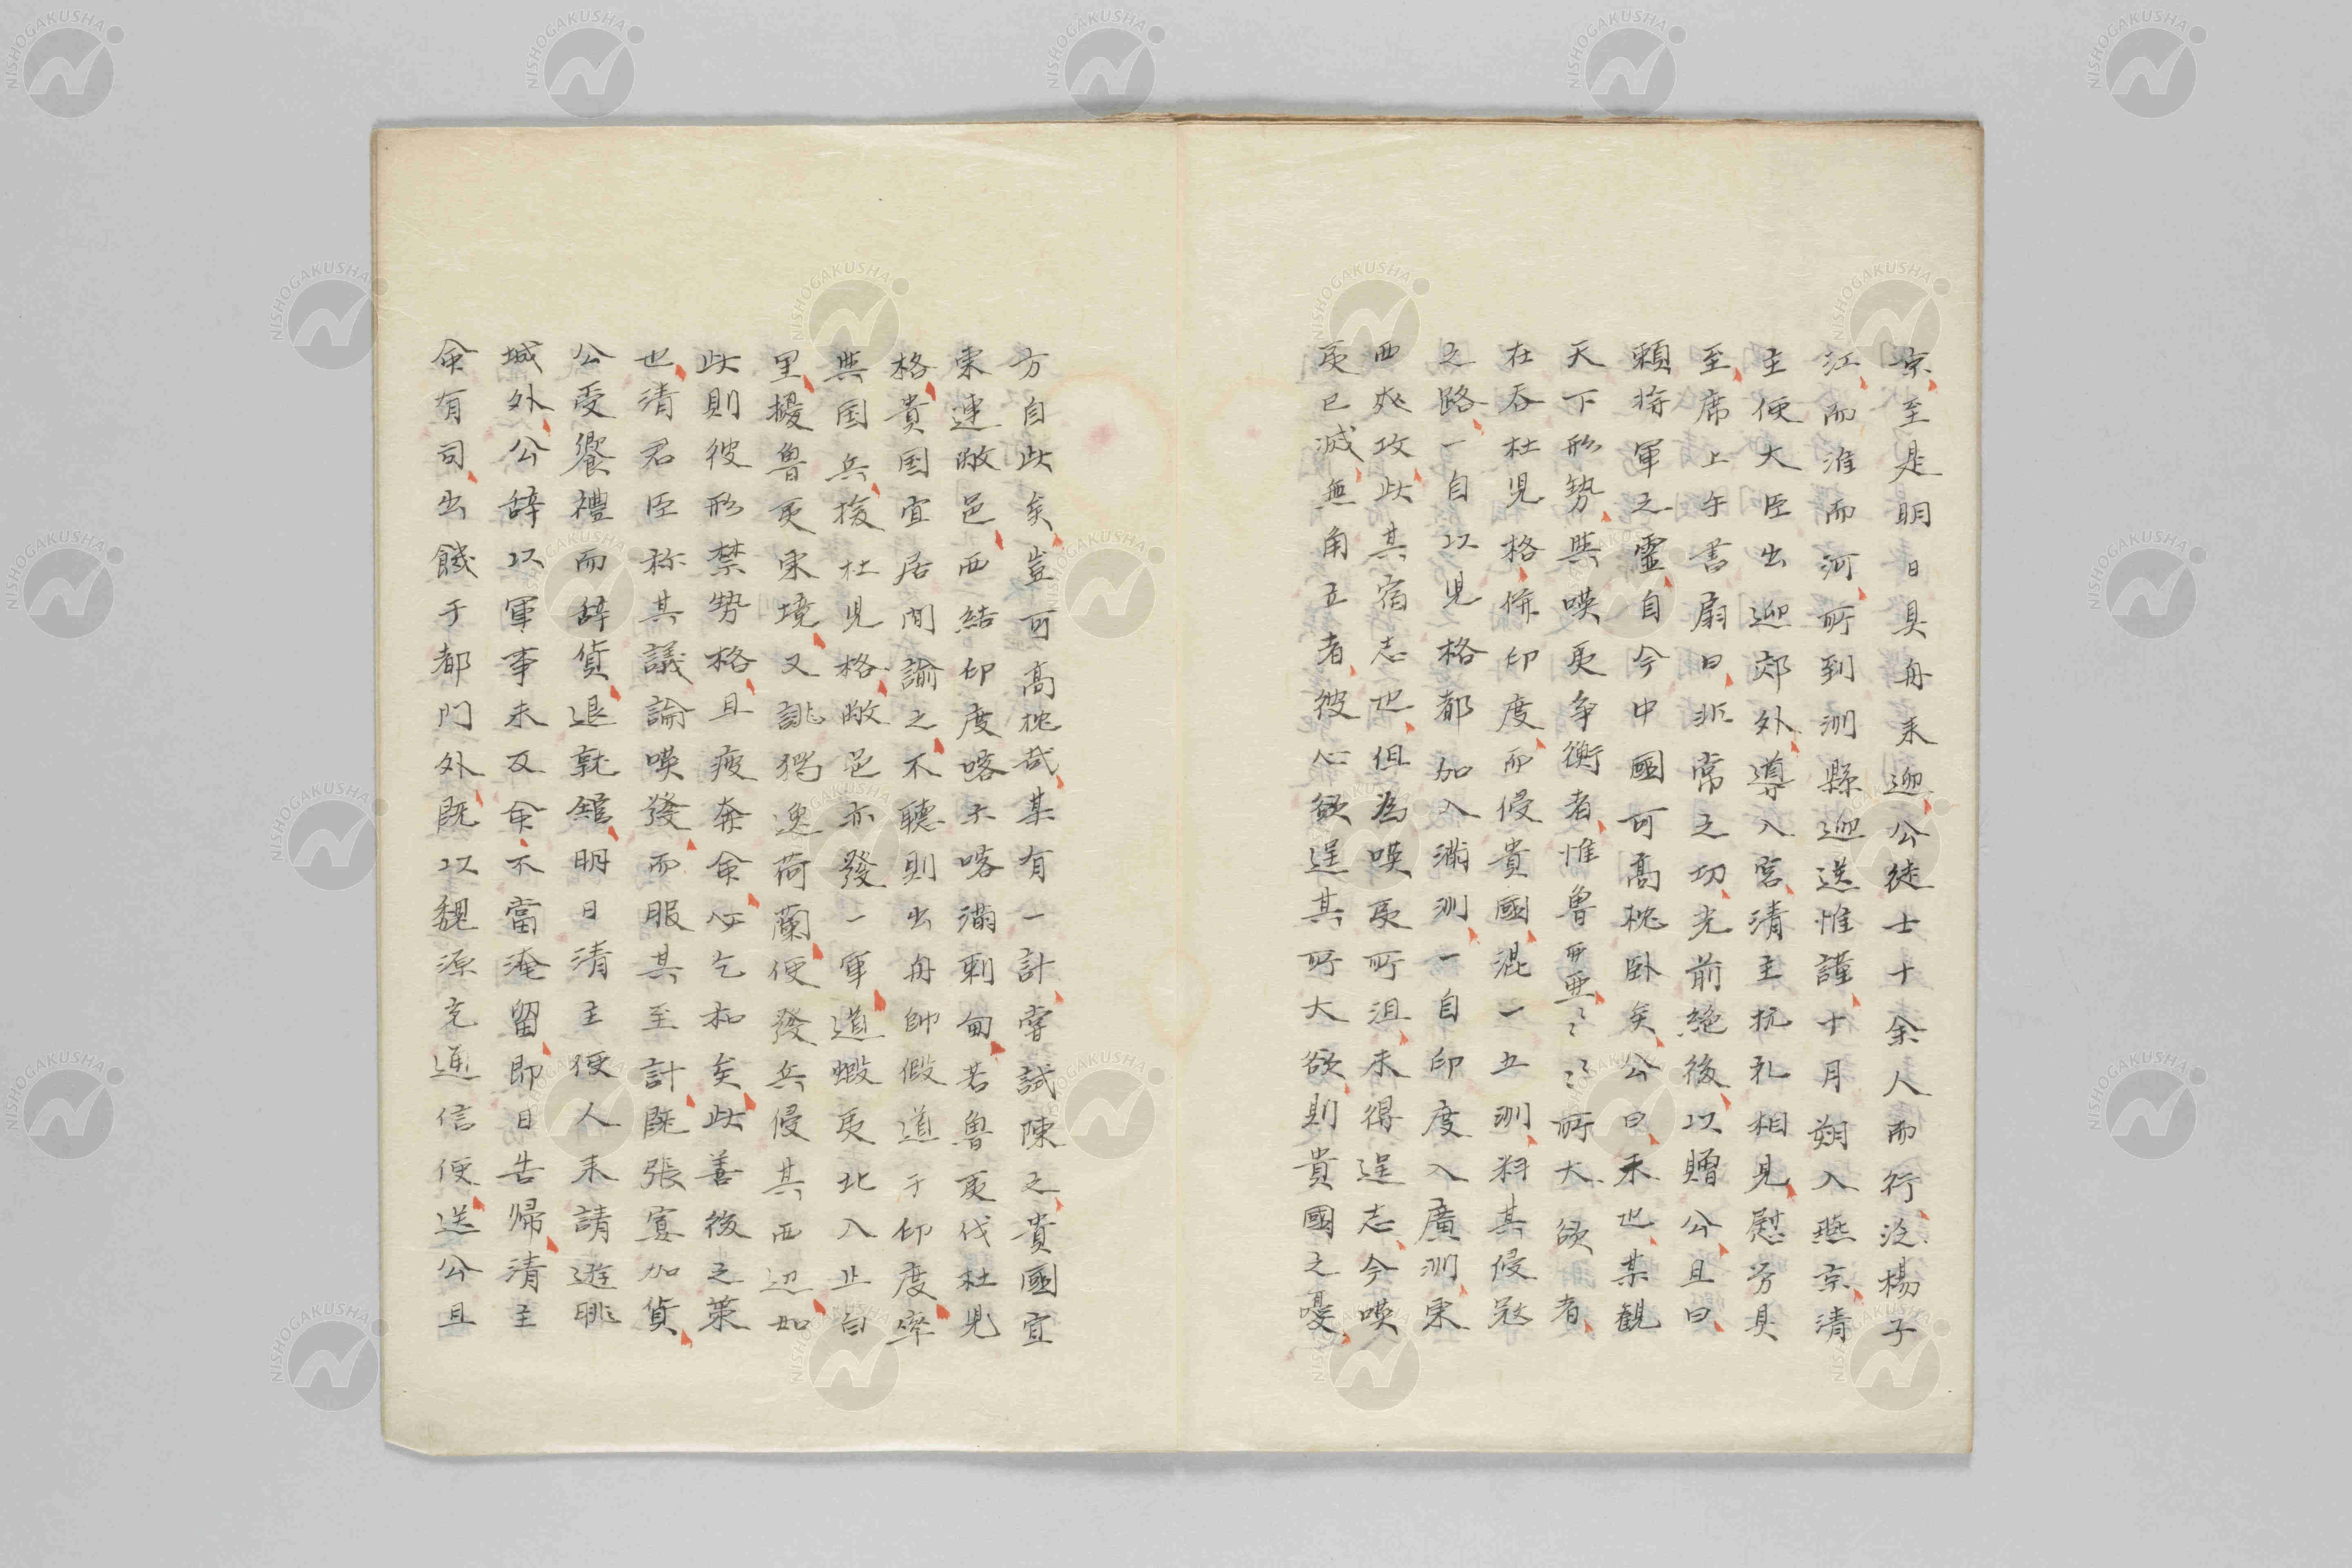 京至是明日具舟来迎公徒士十余人而行泛楊子
江而淮而河所到洲縣迎送惟謹十月朔入燕京清
主使大臣出迎郊外導入宮清主抗礼相見慰労具
至席上乍書扇曰非常之切光前絶後以贈公且曰
頼将軍之霊自今中國可高枕卧矣公曰未也某観
天下形勢與嘆夷争衡者惟魯西亜〻〻〻所大欲者
在吞杜児格併印度而侵貴國混一五洲料其侵冦
之路一自以児格都加入満洲一自印度入廣洲東
西夾攻此其宿志也但為嘆夷所沮未得逞志今嘆
夷已滅無角立者彼心欲逞其所大欲則貴國之憂
方自此矣豈可高枕哉某有一計甞試陳之貴國宜
東連敞邑西結印度喀尓喀満刺甸若魯夷伐杜児
格貴国宜居間諭之不聴則出舟師假道于印度率
與国兵援杜児格敞邑亦發一軍道蝦夷北入止白
里擾魯夷東境又誂独逸荷蘭使發兵侵其西辺如
此則彼形禁勢格且疲奔命必乞和矣此善後之策
也清君臣称其議論嘆發而服其至計既張宴加貨
公受饗禮而辞貨退就舘明日清主使人来請遊眺
城外公辞以軍事未反命不當淹留即日告帰清主
命有司出餞于都門外既以魏源充通信使送公且
NISHOGAKUSHA